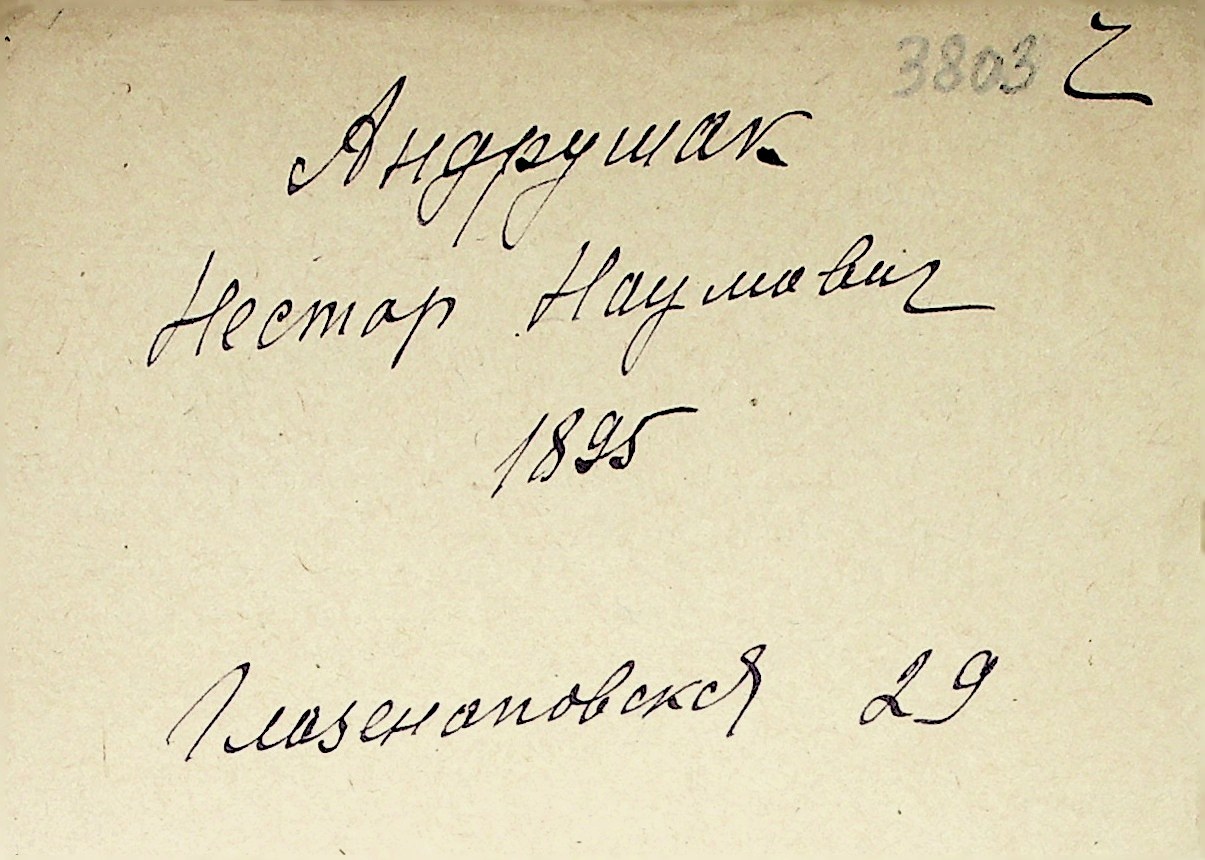 3803 2
Андрушак
Нестор Наумович
1895
Глазенаповская 29